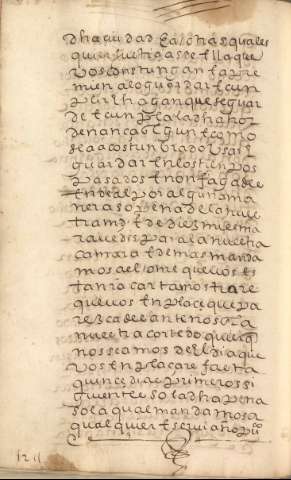 dha ciudad e a los otras quales
quier justicias de ella que
vos constringan e apre
mien a lo guardar e cun
plir e hagan que se guar
de e cunpla la dha hor
denança segun e como
sea acostunbrado usar e
guardar en los tienpos
pasados e non fagades
ende al por alguna ma
nera so pena de la nues
tra md. e de diez mil ma
ravedis para la nuestra
camara e demas manda
mos al ome que vos es
ta nra carta mostrare
que vos enplace que pa
rezcades ante nos en la
nuestra corte do quier q
nos seamos del dia que
vos enplazare fasta
quinze dias primeros si
guientes so la dha pena
so la qual mandamos a
qual quier escrivano pu